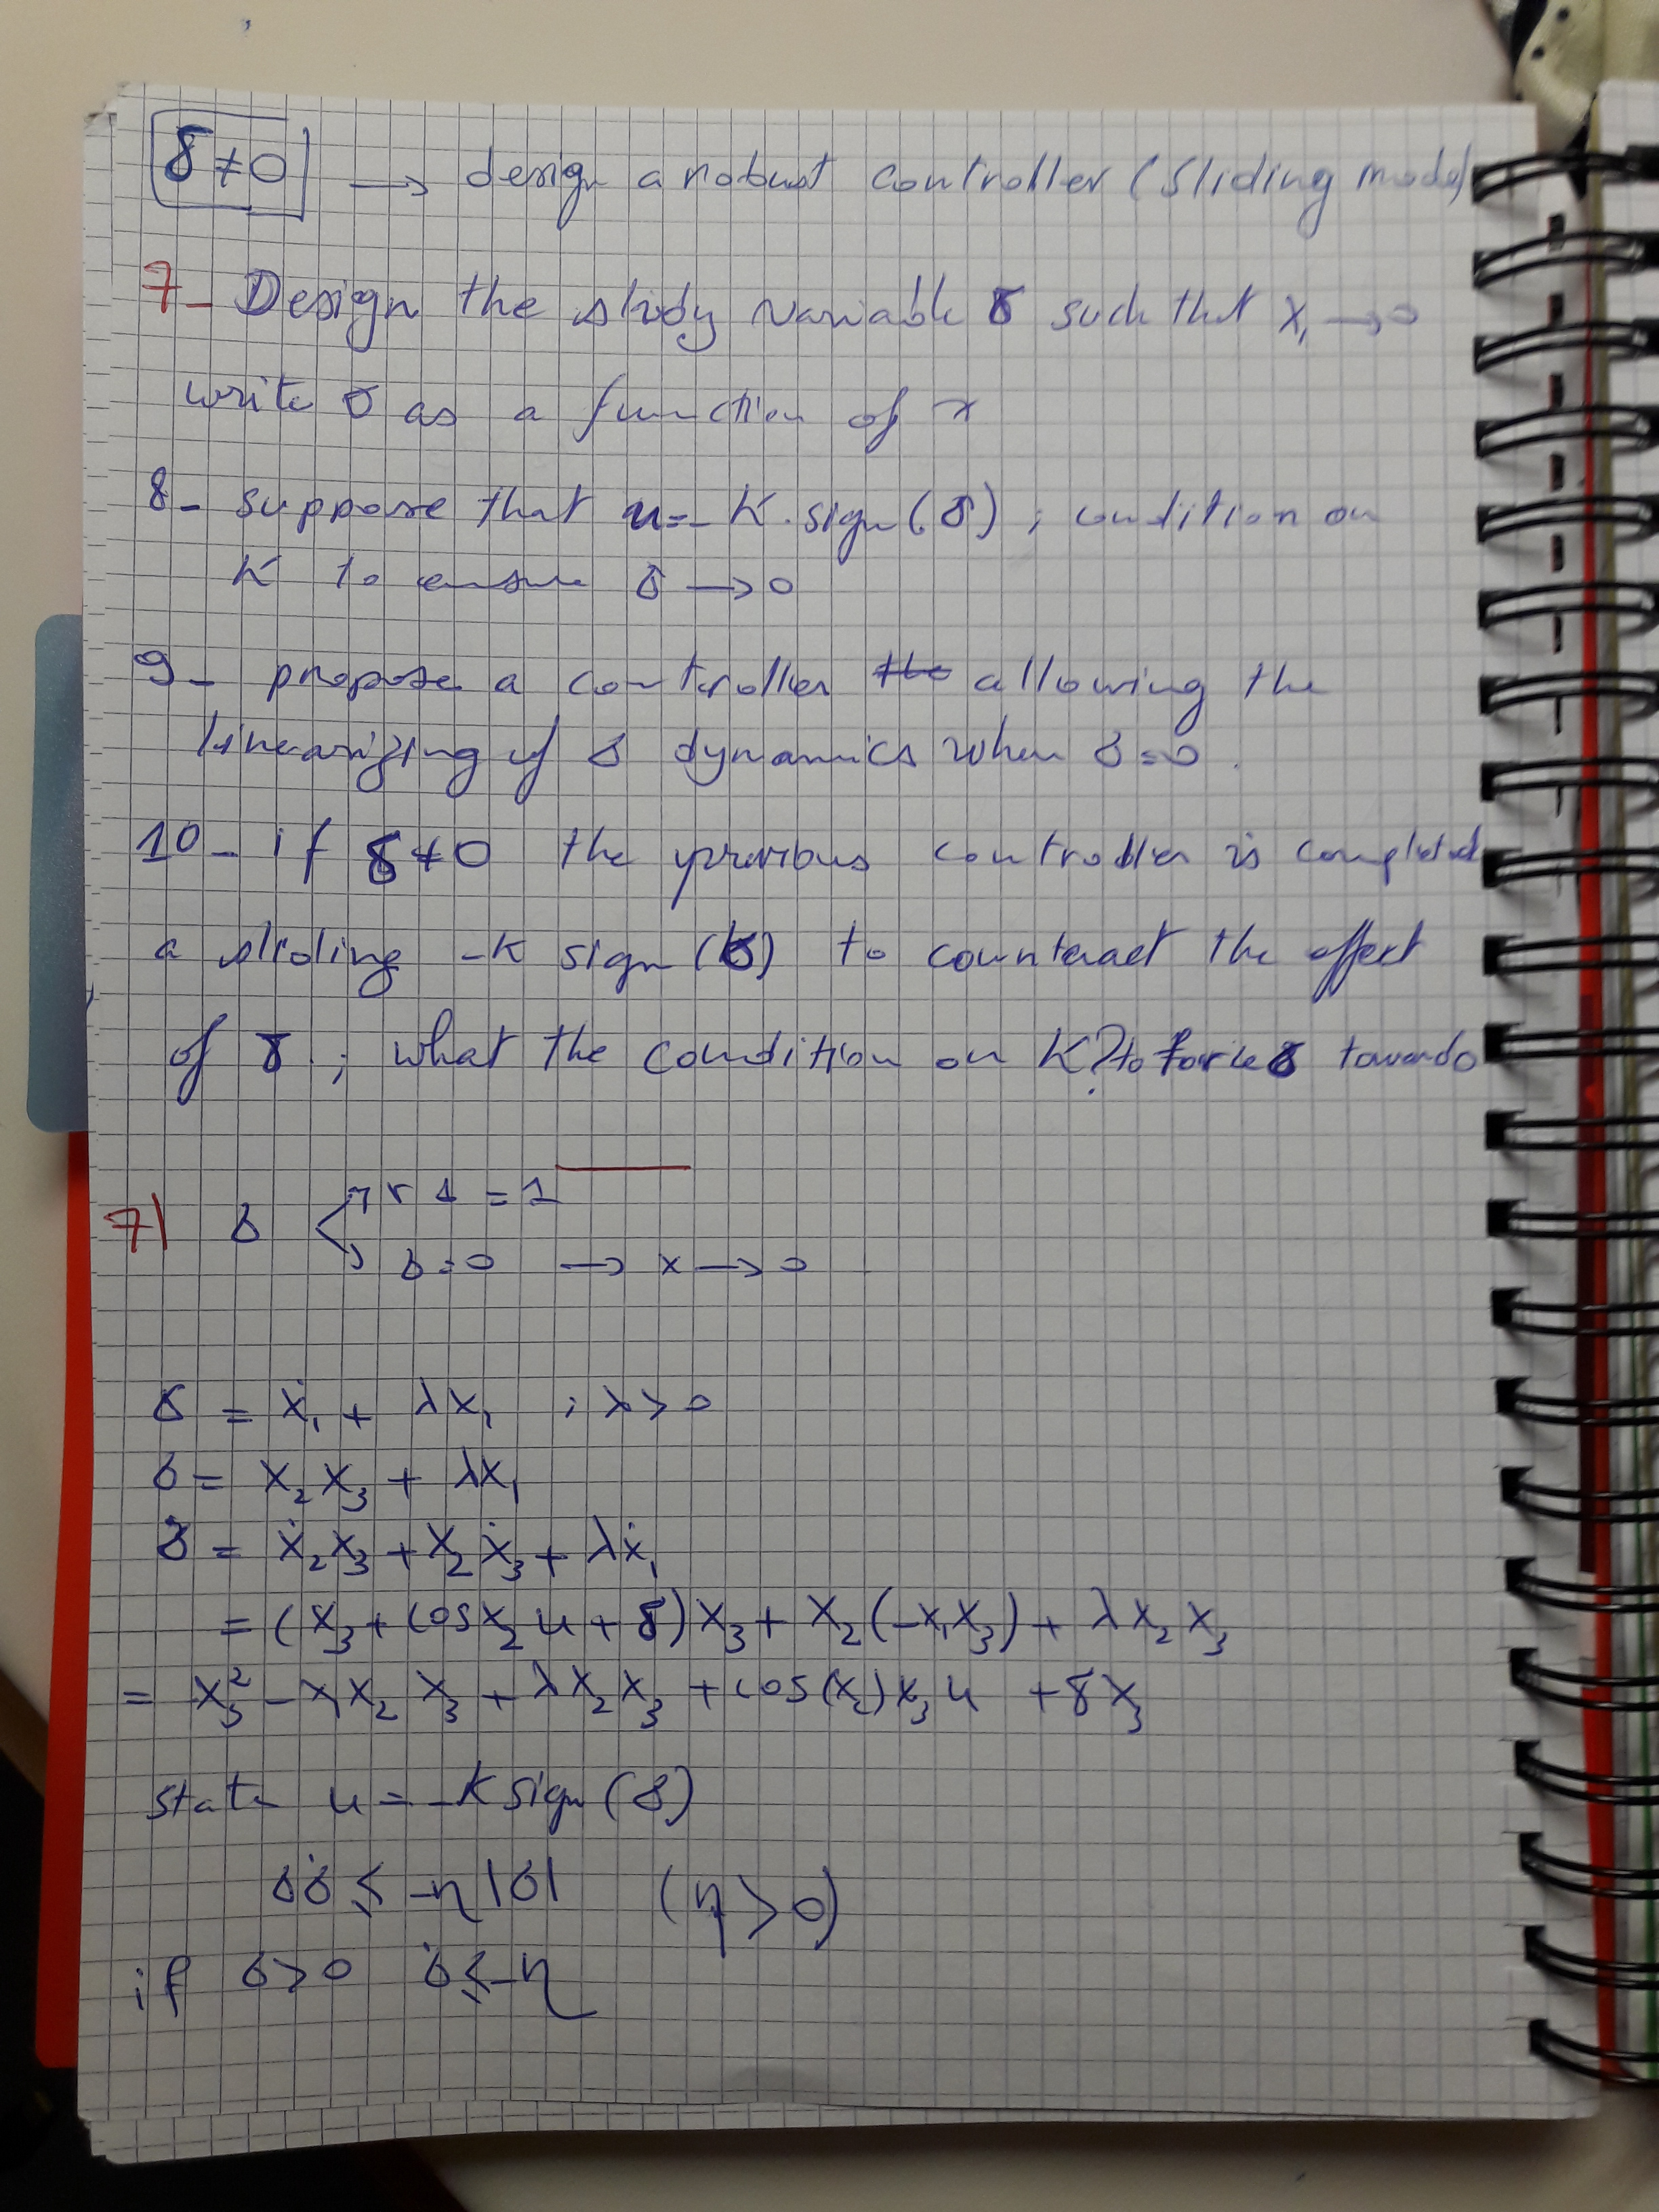 δ ≠ 0 → design a robust controller (Sliding mode)
7- Design the slidy variable σ such that x₁ → 0
write σ as a function of x
8- suppose that u = -K.sign(σ) ; condition on
K to ensure σ → 0
9- propose a controller the allowing the
linearizing of σ dynamics when δ=0.
10- if δ ≠ 0 the previous controller is completed
a sliding -K sign (σ) to counteract the effect
of δ ; what the condition on K? to force σ towards
7) σ r 1 = 1
σ = 0 → x → 0
σ = ẋ₁ + λx₁ ; λ > 0
σ = x₂x₃ + λx₁
σ̇ = ẋ₂x₃ + x₂ẋ₃ + λẋ₁
= (x₃ + cosx₂ u + δ)x₃ + x₂(-x₁x₃) + λx₂x₃
= x₃² - x₁x₂x₃ + λx₂x₃ + cos(x₂)x₃u + δx₃
state u = -K sign(σ)
σσ̇ ≤ -η|σ| (η > 0)
if σ > 0 σ̇ ≤ -η